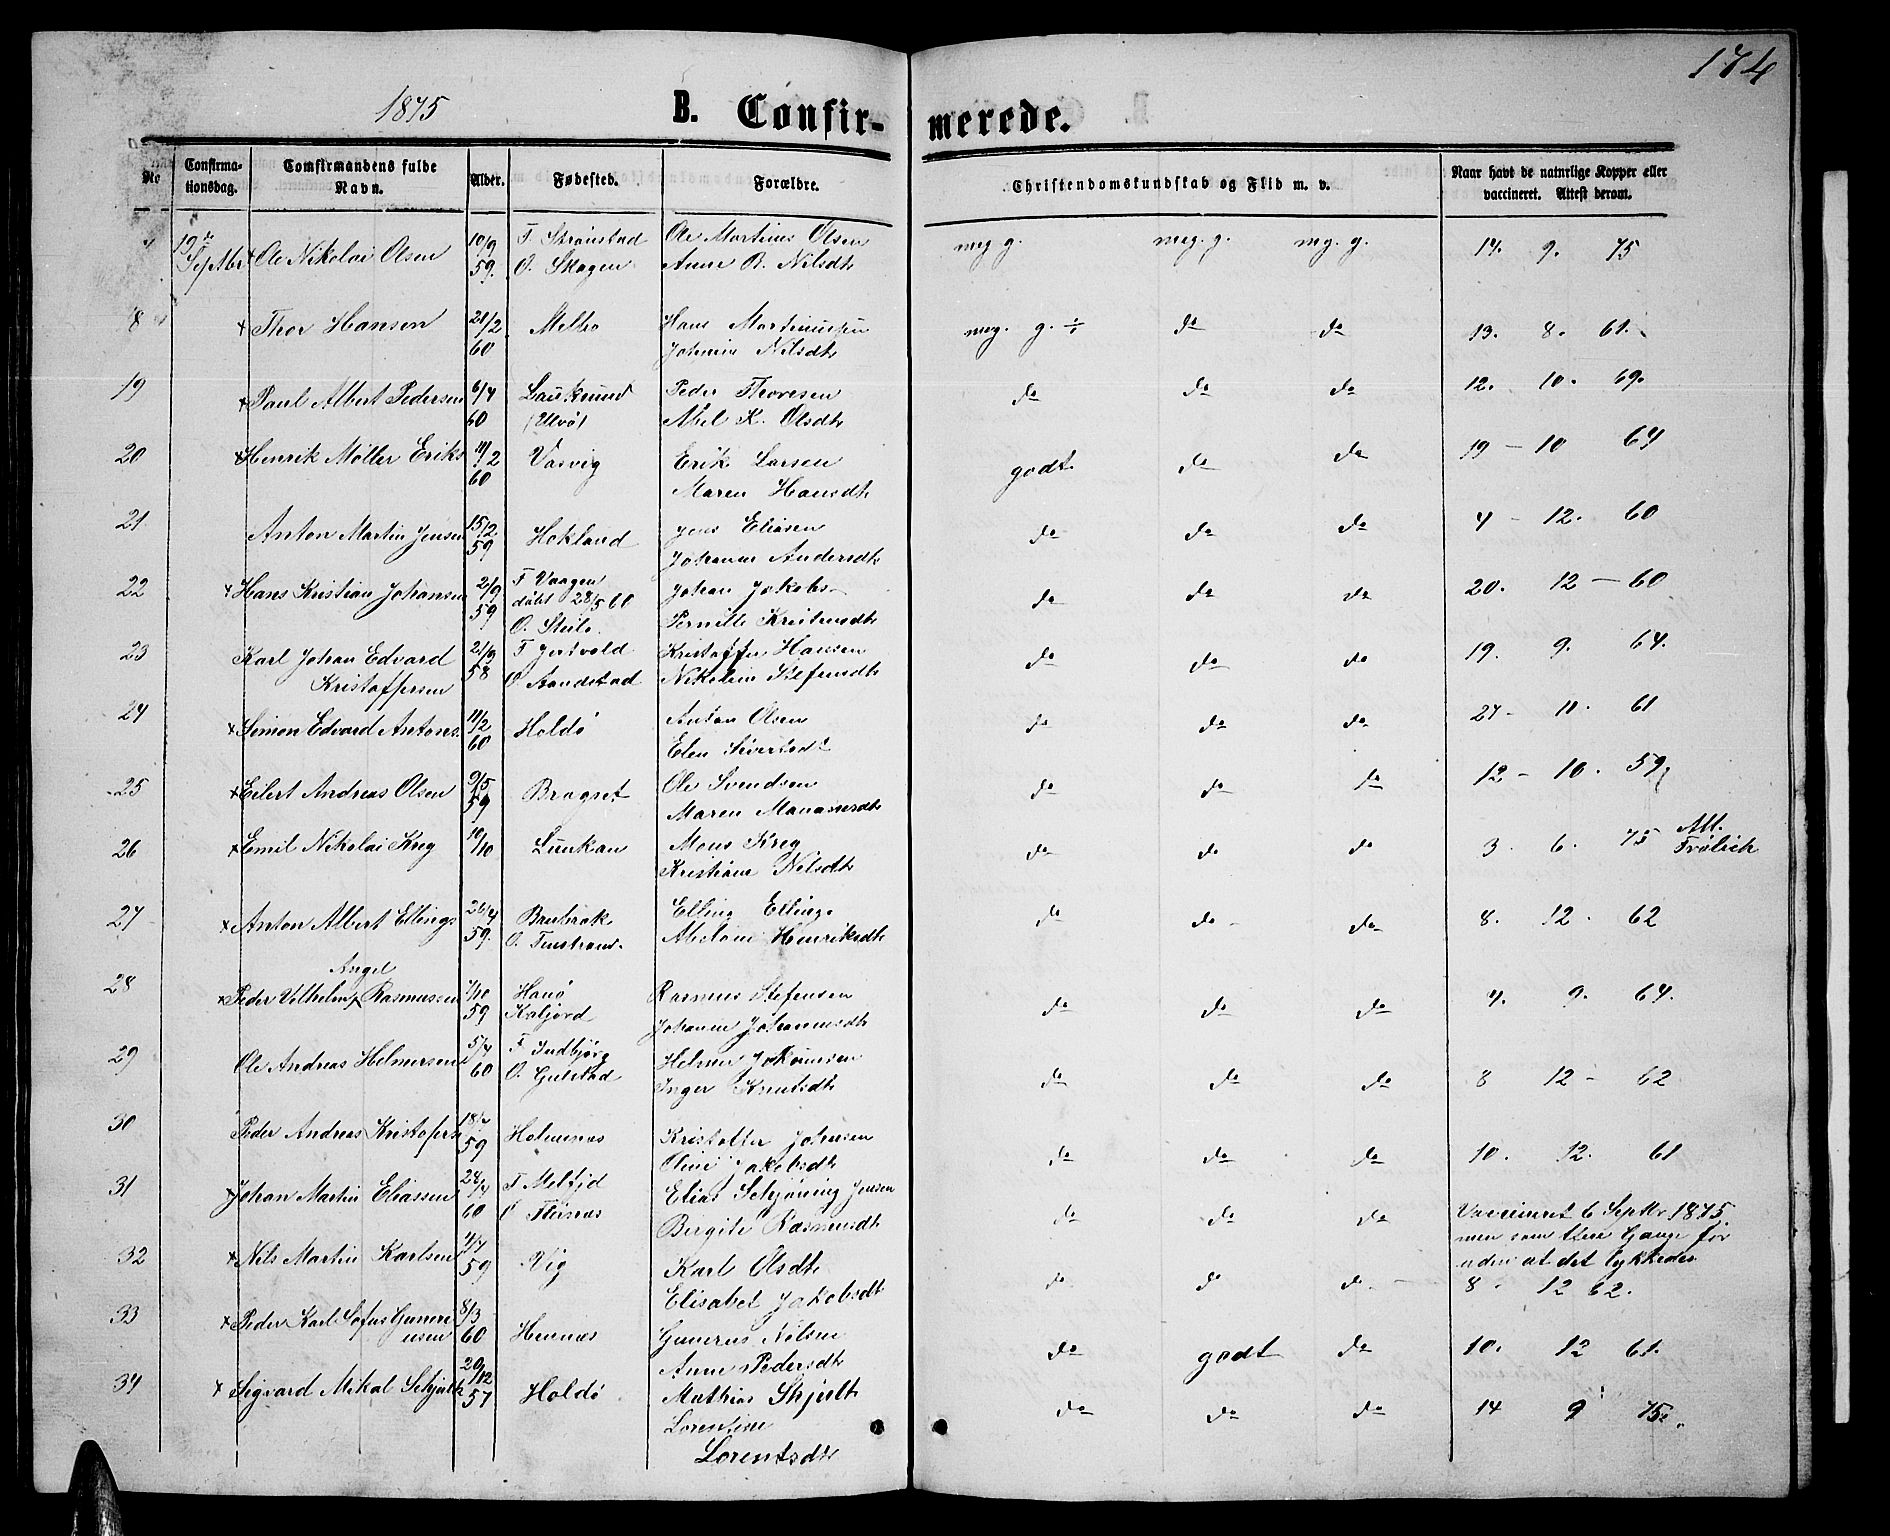 174
1875
B. Confir-
merede.
No
Confirma-
tionsdag.
Comfirmandens fulde
Navn.
Alder.
Fødested.
Forældre.
Christendomskundskab og Flid m. v.
Naar havt de naturlige Kopper eller
vaccineret. Attest derom.
19de Septbr + Ole Nikolai Olsen 10/9 59. F. Strønstad O. Skagen Ole Martinus Olsen Anne B. Nilsdtr meg g. meg. g. mg. g. 14. 9. 75
8 + Thor Hansen 21/2 60 Melbo Hans Martinussen Johanne Nilsdtr meg. g. ÷ do do 13. 8. 61.
19 + Paul Albert Pedersen 6/4 60 Lauksund (Ulvø) Peder Thoresen Abel K. Olsdtr do do do 12. 10. 69.
20 + Henrik Møller Eriks 11/2 60 Vasvig Erik Larsen Maren Hansdtr godt do do 19 - 10 64
21 Anton Martin Jensen 15/12 59 Hokland Jens Eliasen Johanne Andersdtr do do do 4 - 12. 60
22 + Hans Kristian Johansen 2/9 59 F Vaagen døbt 28/5 60 O. Steilo. Johan Jakobs. Pernille Kristensdtr do do do 20. 12 - 60
23 Karl Johan Edvard Kristoffersen 21/9 58 F Jertvold O Sandstad Kristoffer Hansen Nikoline Stefensdtr do do do 19. 9. 64.
24 + Simon Edvard Antons. 11/2 60 Holdø Anton Olsen Elen Sivertsdtr do do do 27 - 11. 61
25 + Eilert Andreas Olsen 9/5 59 Brogset Ole Svendsen Maren Manassesdtr do do do 12 - 10. 59
26 + Emil Nikolai Kreg 10/10 Luukan Mons Kreg Kristiane Nilsdtr do do do 3. 6. 75 Att. Frølich
27 + Anton Albert Ellings 26/4 59. O. Finstrans. Elling Ellings Abelone Henriksdtr do do do 8. 12. 62
28 + Peder Vilhelm Angel Rasmussen 7/10 59 Hanø Kaljord Rasmus Stefensen Johanne Johannesdtr do do do 4. 9. 64.
29 Ole Andreas Helmersen 5/4 60 F Indbjørg O. Gulstad Helmer Inger Knutsdtr do do do 8 12 - 62
30 Peder Andreas Kristofers 59 Holmnes Kristoffer Johnsen Oline Jakobsdtr do do do 10. 12. 61
31 + Johan Martin Eliassen 24/4 60 F Melfjd O Flesnes Elias Schjøning Jensen Birgite Rasmusdtr do do do Vaccineret 6 Septbr 1875 men som flere Gange før uden at det lykkedes
32 + Nils Martin Karlsen 4/7 59 Vig Karl Olsdtr Elisabet Jakobsdtr do do do 8. 12 62.
33 + Peder Karl Sofus Guneriusen 8/3 60 Hennes Gunerus Nilsen Anne Pedersdtr do godt do 10. 12 61.
34 + Sigvard Mikal Schjelt 20/12 57 Holdø Mathias Skjelt Lorentine Lorentsdtr do do do 14 9 75.